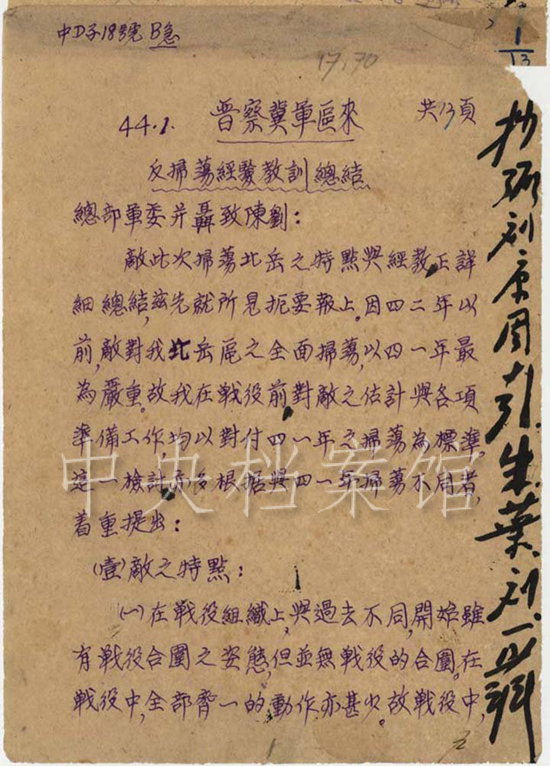 中D子18號 B急
1
13
17,70
44.1. 晉察冀軍區來 共13頁
反掃蕩經驗教訓總結
總部軍委并聶致陳劉：
敵此次掃蕩北岳之特點與經教正詳
細總結，茲先就所見扼要報上。因四二年以
前，敵對我北岳區之全面掃蕩，以四一年最
為嚴重。故我在戰役前，對敵之估計與各項
準備工作，均以對付四一年之掃蕩為標準。
這一檢討亦多根据與四一年掃蕩不同者，
着重提出：
(壹)敵之特點：
(一)在戰役組織上，與過去不同，開始雖
有戰役合圍之姿態，但並無戰役的合圍。在
戰役中，全部齊一的動作亦甚少。故戰役中，
中央档案馆